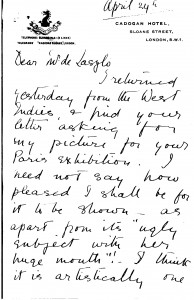 April 29th
CADOGAN HOTEL,
SLOANE STREET,
LONDON, S.W.1.
Dear Mr de Laszlo
I returned
yesterday from the West
Indies, & find your
letter asking for
my picture for your
Paris exhibition. I
need not say how
pleased I shall be for
it to be shown – as
apart from its "ugly
subject with her
huge mouth"! – I think
it is artistically one